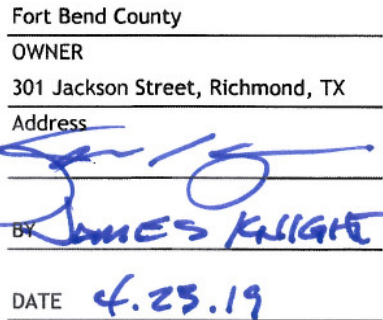 Fort Bend County
OWNER
301 Jackson Street, Richmond, TX
Address
BY JAMES KNIGHT
DATE 4.23.19